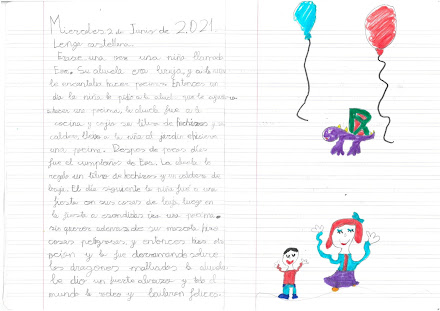 Miercoles 2 de Junio de 2.021.
Lengua castellana.
Erase una vez una niña llamada
Eva. Su abuela era bruja, y a la
le encantaba hacer pocimas. Entonces un
dia la niña le pidio a la abuela que le
hacer una pocima, la abuela fue a la
cocina y cojio su libro de hechizos y su
caldero, llevo a la niña al jardin e hicieron
una pocima. Despues de pocos dias
fue el cumpleaños de Eva. La abuela le
regalo un libro de hechizos y un caldero de
bruja. El dia siguiente la niña fue a una
fiesta con sus cosas de bruja, luego en
la fiesta a escondidas una pocima
sin querer ademas de su mascota
cosas peligrosas, y entonces hizo otra
pocion y la fue derramando sobre
los dragones malvados la abuela
le dio un fuerte abrazo y todo el
mundo la rodeo y bailaron felices.
R